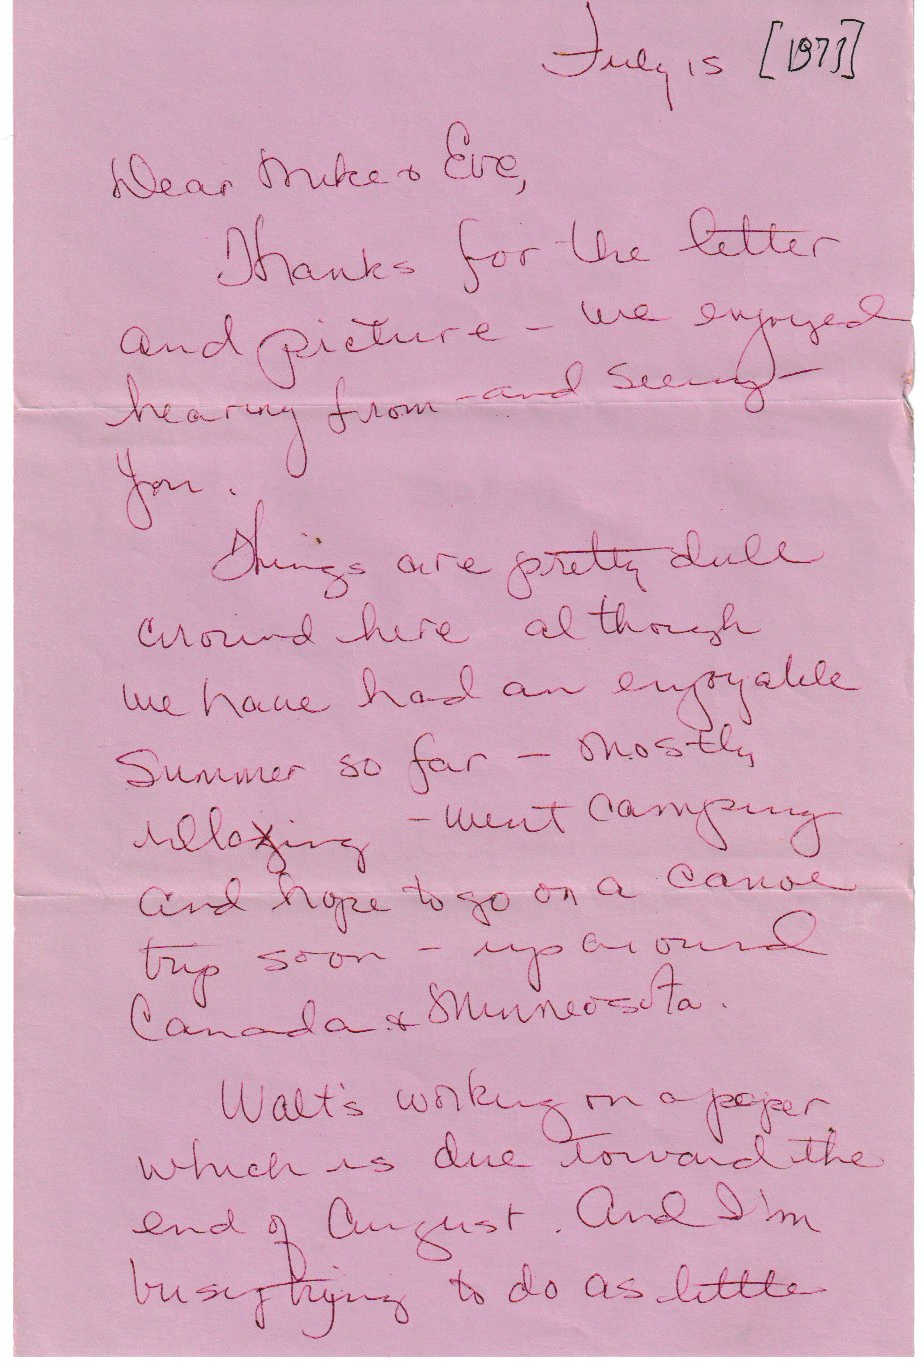 July 15 [1973]
Dear Mike & Eve,
Thanks for the letter
and picture - we enjoyed
hearing from - and seeing -
you.
Things are pretty dull
around here although
we have had an enjoyable
Summer so far - mostly
relaxing - went camping
and hope to go on a canoe
trip soon - up around
Canada & Minneosota.
Walt's working on a paper
which is due toward the
end of August. And I'm
busy trying to do as little